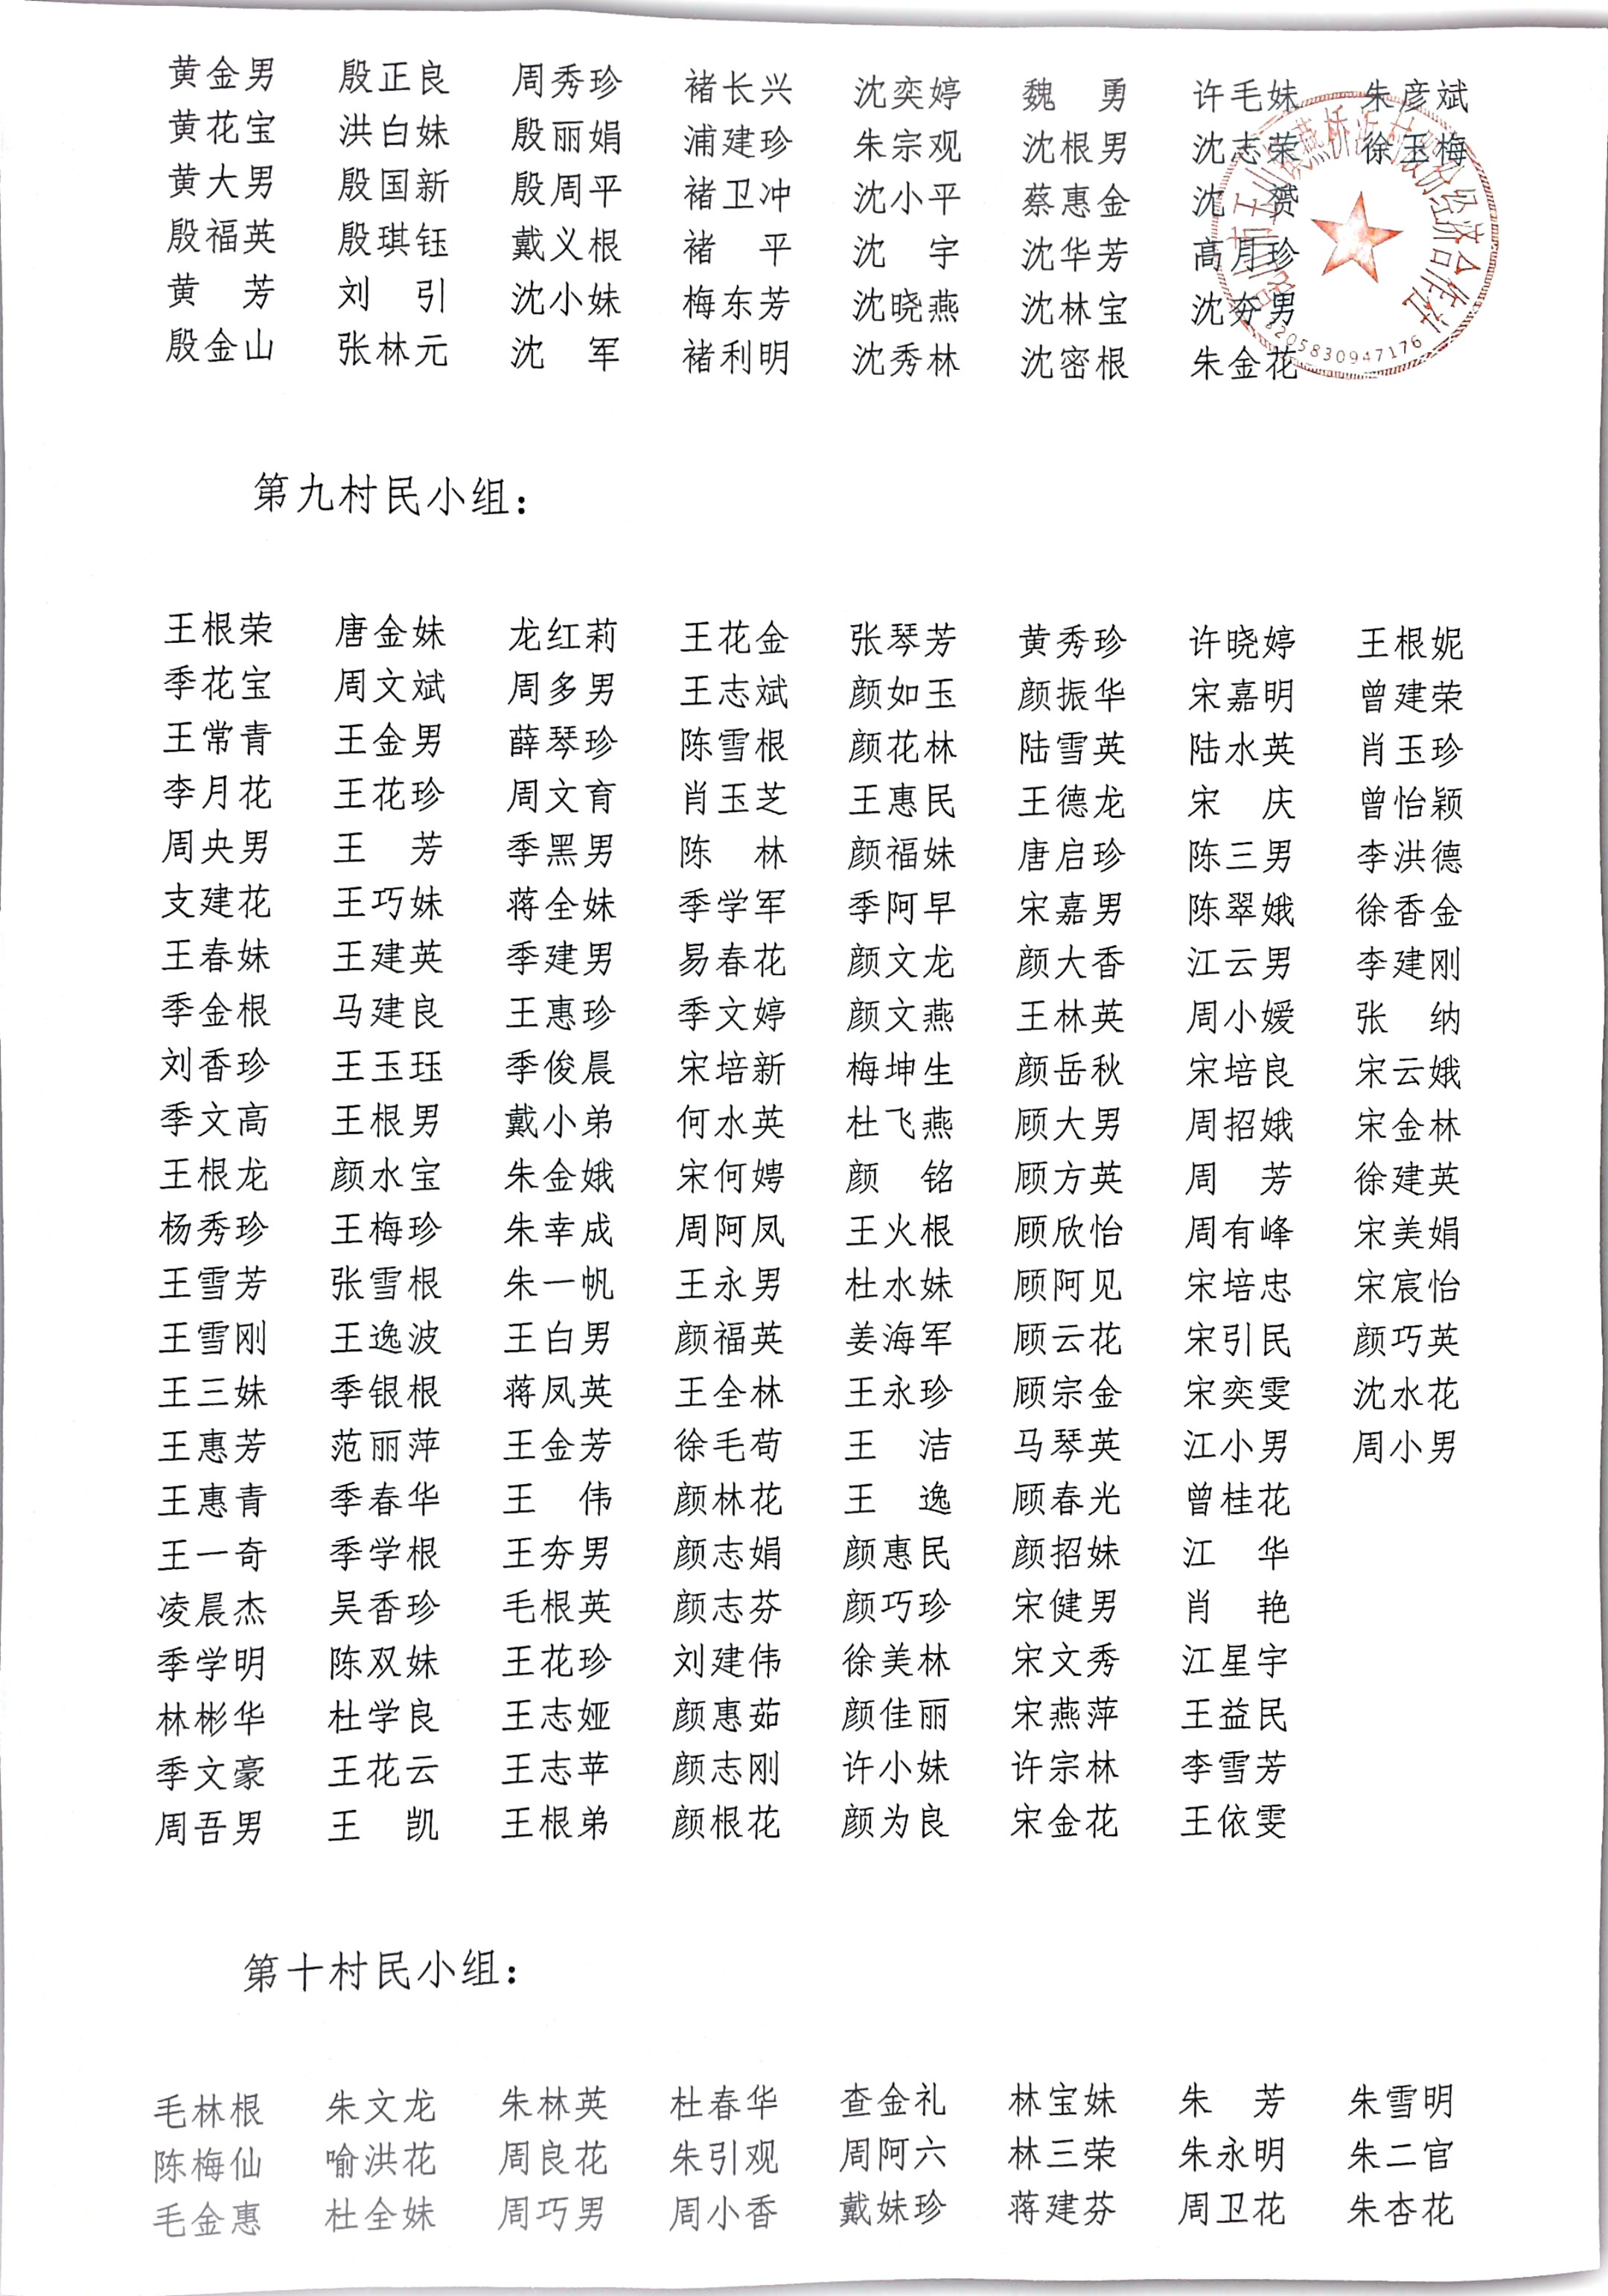 黄金男 殷正良 周秀珍 褚长兴 沈奕婷 魏 勇 许毛妹 朱彦斌
黄花宝 洪白妹 殷丽娟 浦建珍 朱宗观 沈根男 沈志荣 徐玉梅
黄大男 殷国新 殷周平 褚卫冲 沈小平 蔡惠金 沈 贺
殷福英 殷琪钰 戴义根 褚 平 沈 宇 沈华芳 高月珍
黄 芳 刘 引 沈小妹 梅东芳 沈晓燕 沈林宝 沈夯男
殷金山 张林元 沈 军 褚利明 沈秀林 沈密根 朱金花
3205830947176
第九村民小组：
王根荣 唐金妹 龙红莉 王花金 张琴芳 黄秀珍 许晓婷 王根妮
季花宝 周文斌 周多男 王志斌 颜如玉 颜振华 宋嘉明 曾建荣
王常青 王金男 薛琴珍 陈雪根 颜花林 陆雪英 陆水英 肖玉珍
李月花 王花珍 周文育 肖玉芝 王惠民 王德龙 宋 庆 曾怡颖
周央男 王 芳 季黑男 陈 林 颜福妹 唐启珍 陈三男 李洪德
支建花 王巧妹 蒋全妹 季学军 季阿早 宋嘉男 陈翠娥 徐香金
王春妹 王建英 季建男 易春花 颜文龙 颜大香 江云男 李建刚
季金根 马建良 王惠珍 季文婷 颜文燕 王林英 周小嫒 张 纳
刘香珍 王玉珏 季俊晨 宋培新 梅坤生 颜岳秋 宋培良 宋云娥
季文高 王根男 戴小弟 何水英 杜飞燕 顾大男 周招娥 宋金林
王根龙 颜水宝 朱金娥 宋何娉 颜 铭 顾方英 周 芳 徐建英
杨秀珍 王梅珍 朱幸成 周阿凤 王火根 顾欣怡 周有峰 宋美娟
王雪芳 张雪根 朱一帆 王永男 杜水妹 顾阿见 宋培忠 宋宸怡
王雪刚 王逸波 王白男 颜福英 姜海军 顾云花 宋引民 颜巧英
王三妹 季银根 蒋凤英 王全林 王永珍 顾宗金 宋奕雯 沈水花
王惠芳 范丽萍 王金芳 徐毛苟 王 洁 马琴英 江小男 周小男
王惠青 季春华 王 伟 颜林花 王 逸 顾春光 曾桂花
王一奇 季学根 王夯男 颜志娟 颜惠民 颜招妹 江 华
凌晨杰 吴香珍 毛根英 颜志芬 颜巧珍 宋健男 肖 艳
季学明 陈双妹 王花珍 刘建伟 徐美林 宋文秀 江星宇
林彬华 杜学良 王志娅 颜惠茹 颜佳丽 宋燕萍 王益民
季文豪 王花云 王志苹 颜志刚 许小妹 许宗林 李雪芳
周吾男 王 凯 王根弟 颜根花 颜为良 宋金花 王依雯
第十村民小组：
毛林根 朱文龙 朱林英 杜春华 查金礼 林宝妹 朱 芳 朱雪明
陈梅仙 喻洪花 周良花 朱引观 周阿六 林三荣 朱永明 朱二官
毛金惠 杜全妹 周巧男 周小香 戴妹珍 蒋建芬 周卫花 朱杏花